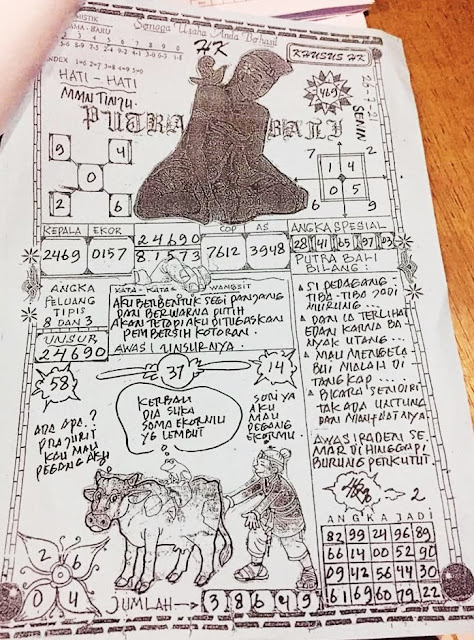 Semoga Usaha Anda Berhasil
HK
KHUSUS HK
INDEX 1=6 2=7 3=8 4=9 5=0
HATI - HATI
469
26-7-21
SENIN
PUTRA BALI
9 4
0
2 6
7 2
1 4
0 5
6 9
KEPALA EKOR 24690 COP AS
2469 0157 81573 7612 3948
ANGKA SPESIAL
28 41 65 97 03
PUTRA BALI
BILANG :
ANGKA
PELUANG
TIPIS
8 DAN 3
UNSUR
24690
KATA - KATA WANGSIT
AKU BERBENTUK SEGI PANJANG
DAN BERWARNA PUTIH
AKAN TETAPI AKU DITUGASKAN
PEMBERSIH KOTORAN.
AWAS! UNSURNYA.
SI PEDAGANG
TIBA-TIBA JADI
MURUNG...
DAN IA TERLIHAT
EDAN KARNA BA-
NYAK UTANG...
MAU MENGETA
HUI MALAH DI
TANGKAP...
BICARA SENDIRI
TAK ADA UNTUNG
DAN MANFAATNYA.
AWAS! RADEN SE
MAR DI HINGGAPI
BURUNG PERKUTUT
58
37
14
ADA APA..?
PRAJURIT
KAU MAU
PEGANG AKU
KERBAU
DIA SUKA
SAMA EKORMU
YG LEMBUT
SORI YA
AKU
MAU
PEGANG
EKORMU.
2
ANGKA JADI
82 99 24 96 89
66 14 00 52 90
09 42 56 44 30
61 69 60 79 22
2 6
0 4
JUMLAH → 3 8 6 4 9